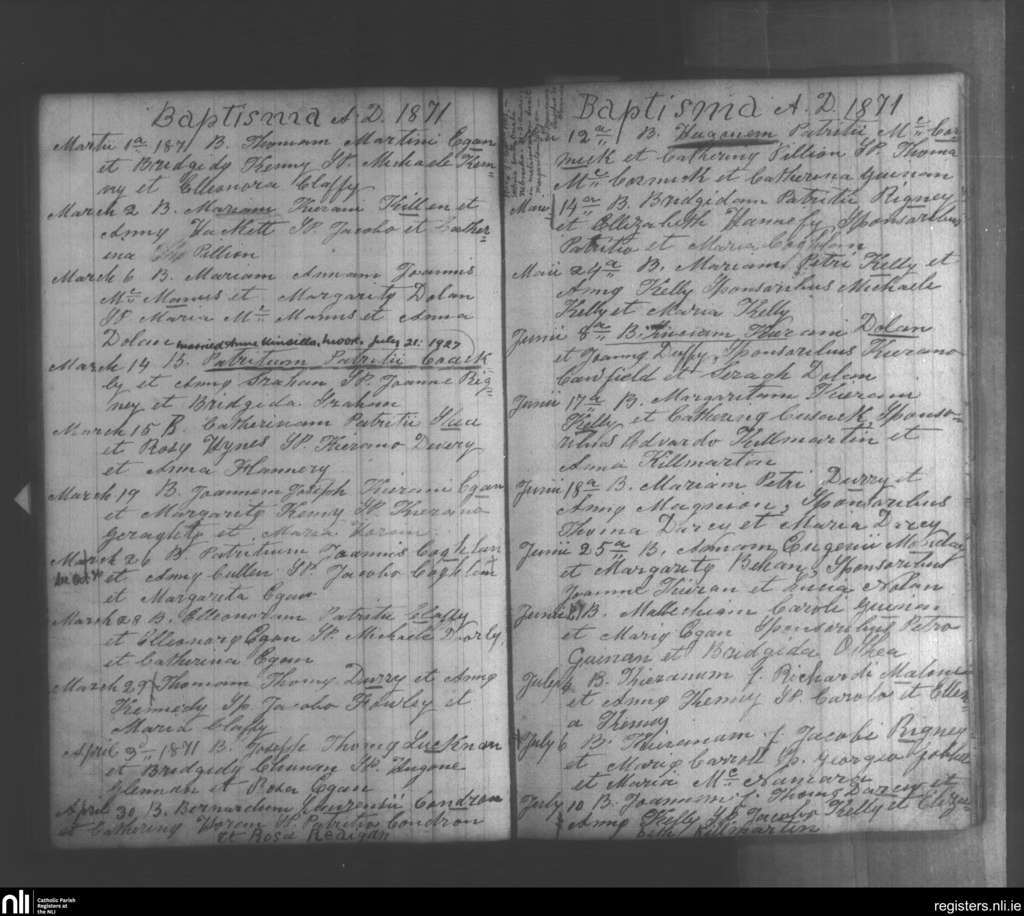 Baptisma A.D. 1871
Martii 1a 1871 B. Thomam Martini Egan
et Bridgidy Kenny Sp. Michaele Ken=
ny et Elleonora Claffy
March 2 B. Mariam Kierani Killeen et
Anny Hackett Sp. Jacobo et Cather=
ina Pillion
March 6 B. Mariam Annam Joannis
Mc Manus et Margarity Dolan
Sp. Maria Mc Manus et Anna
Dolan married Anne Kinsella, July 21. 1927
March 14 B. Patritium Patritii Coack
ley et Anny Graham Sp. Joanne Rig=
ney et Bridgida Graham
March 15 B. Catherinam Patritii Shea
et Rosy Hynes Sp. Kierano Devery
et Anna Flannery
March 19 B. Joannem Joseph Kierani Egan
et Margarity Kenny Sp. Kierano
Geraghty et Maria Horan
March 26 B. Patritium Joannis Coghlan
et Anny Cullen Sp. Jacobo Coghlan
et Margarita Egan
March 28 B. Elleonoram Patritii Claffy
et Elleonory Egan Sp. Michaele Doorly
et Catherina Egan
March 29 Thomam Thomy Durry et Anny
Kennedy Sp. Jacobo Rowley et
Maria Claffy
April 9 1871 B. Joseph Thomy
et Bridgidy Cleaney Sp. Eugene
Glennan et Rosa Egan
April 30, B. Bernardum Laurensii Condron
et Catheriny Horan Sp. Patritio Condron
et Rosa Reaigan
Baptisma A.D. 1871
12a B. Patritii Mc Cor=
mick et Catheriny Pillion Sp. Thoma
Mc Cormick et Catherina Guinan
Maii 14a B. Bridgidam Patritii Rigney
et Ellizabeth Hanafy Sponsoribus
Patritio et Maria Coghlan
Maii 24a B. Mariam Petri Kelly et
Anny Kelly Sponsoribus Michaele
Kelly et Maria Kelly
Junii 8a B. Kierani Dolan
et Joanny Duffy, Sponsoribus Kierano
Cawfield et Seragh Dolan
Junii 17a B. Margaritam Kierani
Kelly et Catheriny Cusack, Sponso=
ribus Edvardo Killmartin et
Anna Killmartin
Junii 18a B. Mariam Petri Durry et
Anny Magnion, Sponsoribus
Thoma Darcy et Maria Darcy
Junii 25a B. Annam Eugenii
et Margarity Behan, Sponsoribus
Joanne Kieran et Lucia Nolan
Junii B. Malachiam Caroli Guinan
et Mariy Egan Sponsoribus Petro
Guinan et Bridgida OShea
July B. Kieranum f. Richardi Malone
et Anny Kenny Sp. Carolo et Ellen=
a Kenny
July 6 B. Kieranum f. Jacobi Rigney
et Mariy Carroll Sp. Georgio
et Maria Mc Namara
July 10 B. Joannem f. Thomy Darcy et
Anny Kelly Sp. Jacobo Kelly et Eliza
beth Killmartin
nli Catholic Parish
Registers at
the NLI
registers.nli.ie